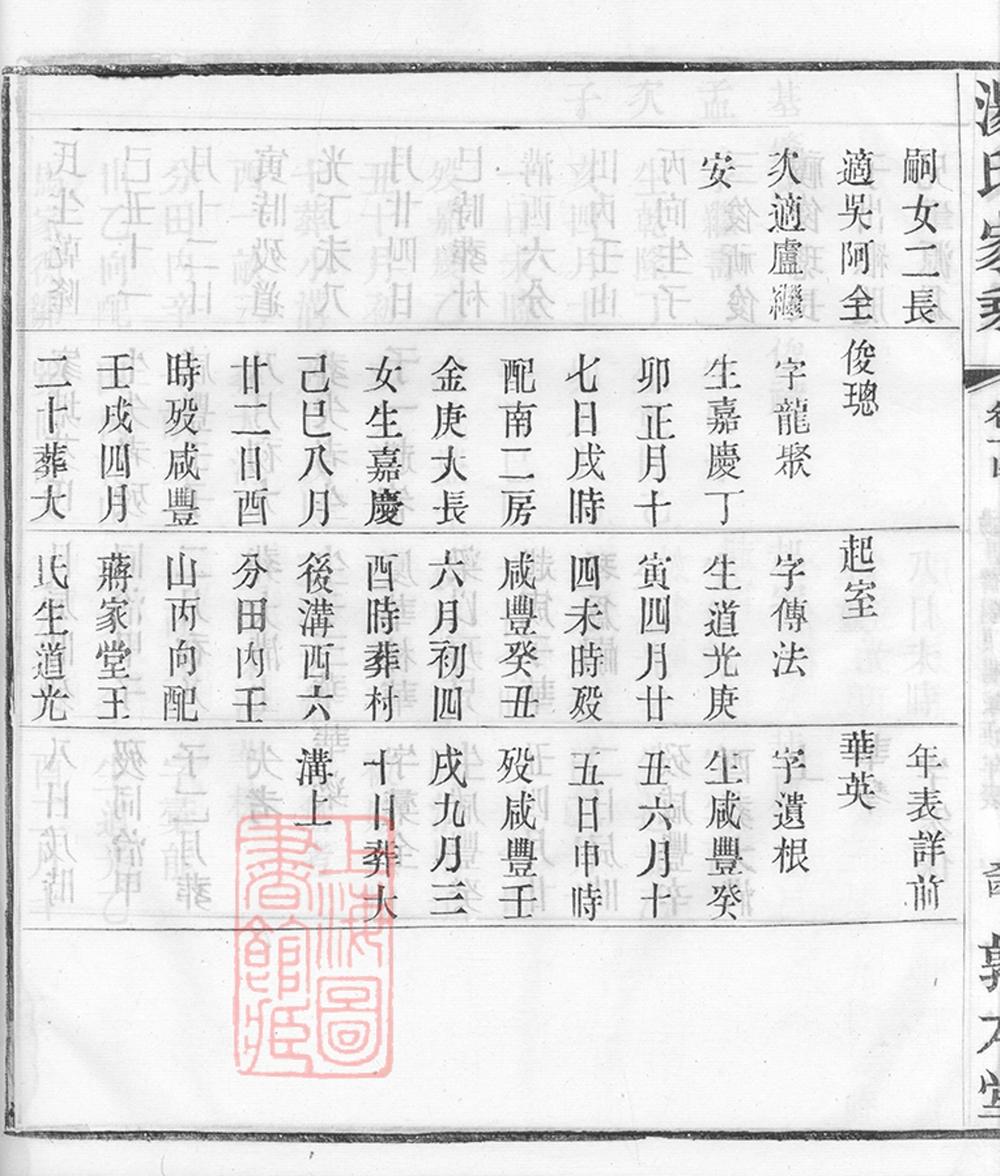 嗣女二長
適吳阿全
次適盧繼
安
俊璁
字龍聚
生嘉慶丁
卯正月十
七日戌時
配南二房
金庚大長
女生嘉慶
己巳八月
廿二日酉
時歿咸豐
壬戌四月
二十葬大
起室
字傳法
生道光庚
寅四月廿
四未時歿
咸豐癸丑
六月初四
酉時葬村
後溝西六
分田内壬
山丙向配
蔣家堂王
氏生道光
年表詳前
華英
字遺根
生咸豐癸
丑六月十
五日申時
歿咸豐壬
戌九月三
十日葬大
溝上
上海圖
書館藏